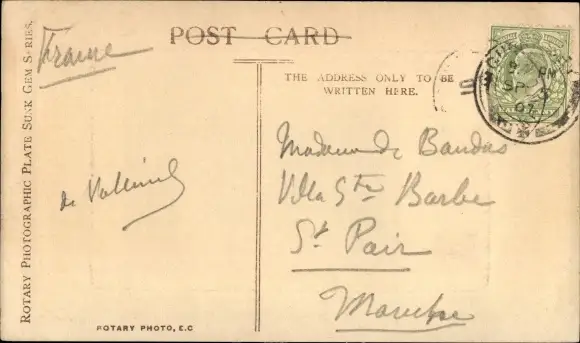 POST CARD
France
THE ADDRESS ONLY TO BE
WRITTEN HERE.
ROTARY PHOTOGRAPHIC PLATE SUNK GEM SERIES.
Madame de Bandas
Villa Ste Barbe
St Pair
Manche
de
ROTARY PHOTO, E.C